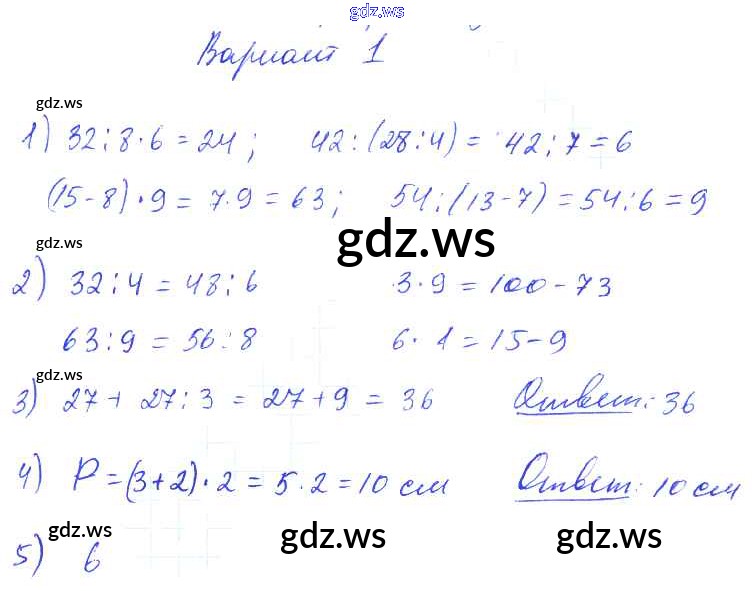 gdz.ws
Вариант 1
gdz.ws
1) 32:8·6=24; 42:(28:4)=42:7=6
(15-8)·9=7·9=63; 54:(13-7)=54:6=9
gdz.ws
gdz.ws
2) 32:4=48:6 3·9=100-73
63:9=56:8 6·1=15-9
gdz.ws
3) 27+27:3=27+9=36 Ответ: 36
gdz.ws
4) P=(3+2)·2=5·2=10 см Ответ: 10 см
gdz.ws gdz.ws gdz.ws
5) 6